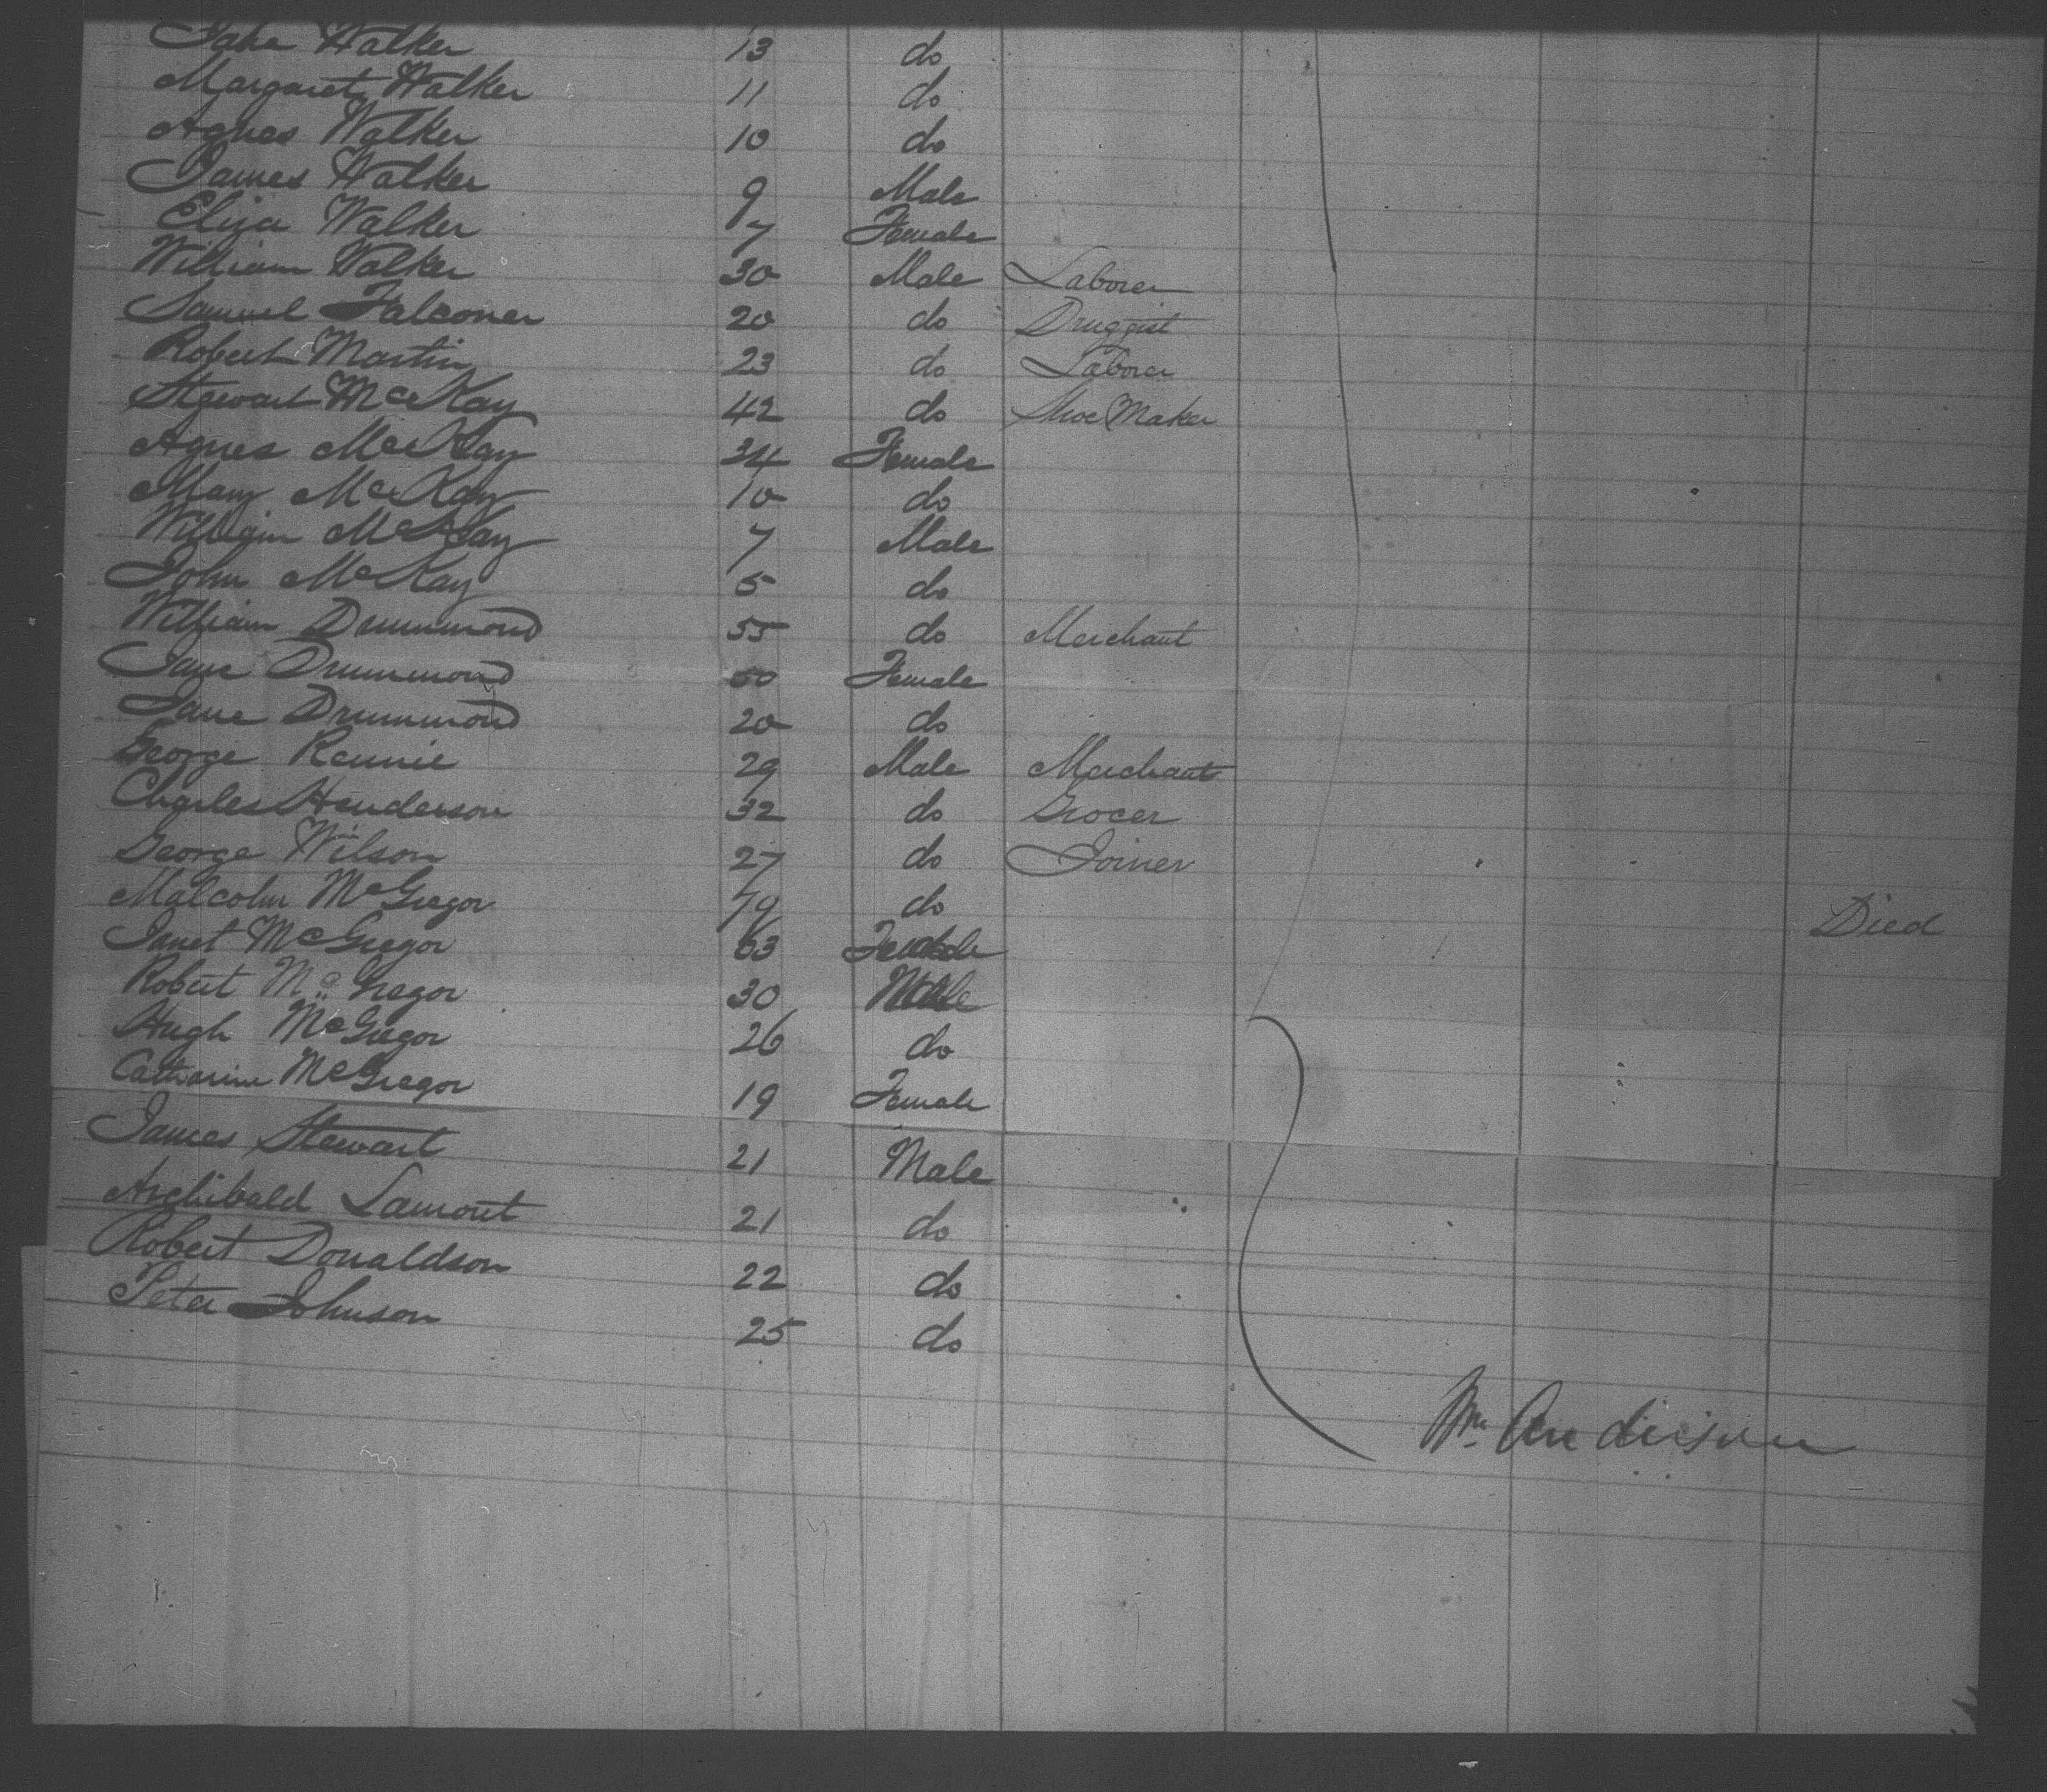 Jane Walker 13 do
Margaret Walker 11 do
Agnes Walker 10 do
James Walker 9 Male
Eliza Walker 7 Female
William Walker 30 Male Laborer
Samuel Falconer 20 do Druggist
Robert Martin 23 do Laborer
Stewart McKay 42 do Shoe Maker
Agnes McKay 34 Female
Mary McKay 10 do
William McKay 7 Male
John McKay 5 do
William Drummond 55 do Merchant
Jane Drummond 50 Female
Jane Drummond 20 do
George Rennie 29 Male Merchant
Charles Henderson 32 do Grocer
George Wilson 27 do Joiner
Malcolm McGregor 79 do Died
Janet McGregor 63 Female
Robert McGregor 30 Male
Hugh McGregor 26 do
Catharine McGregor 19 Female
James Stewart 21 Male
Archibald Lamont 21 do
Robert Donaldson 22 do
Peter Johnson 25 do
Wm